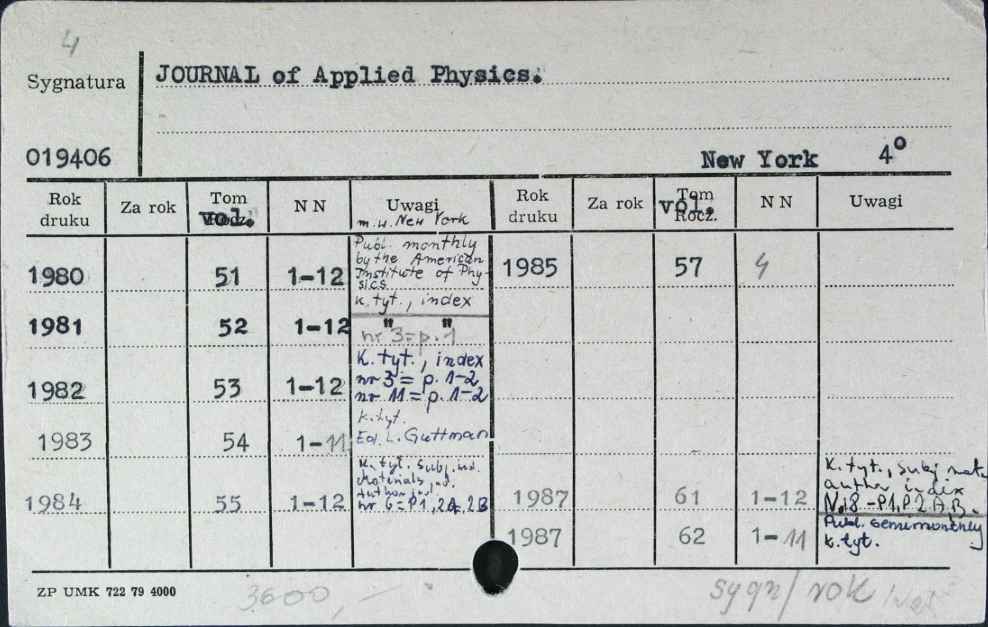 4
Sygnatura
JOURNAL of Applied Physics.
019406
New York 4º
Rok druku Za rok Tom Rocz. vol. N N Uwagi Rok druku Za rok Tom Rocz. vol. N N Uwagi
m.w. New York
Publ. monthly
by the American
Institute of Phy-
sics
1980 51 1-12 k. tyt., index
1985 57 4
1981 52 1-12 " "
nr 3=p.1
K. tyt., index
1982 53 1-12 nr 3= p. 1-2
nr 11= p. 1-2
k.tyt.
1983 54 1-11 Ed. L. Guttman
K. tyt. Subj. ind.
Materials ind.
Author ind.
1984 55 1-12 nr 6=P1, 2A, 2B
K. tyt., subj mat
author index
1987 61 1-12 N.8 -P1, P2A.B.
1987 62 1-11 Publ. semimonthly
k.tyt.
ZP UMK 722 79 4000
3600,-
sygn/rok